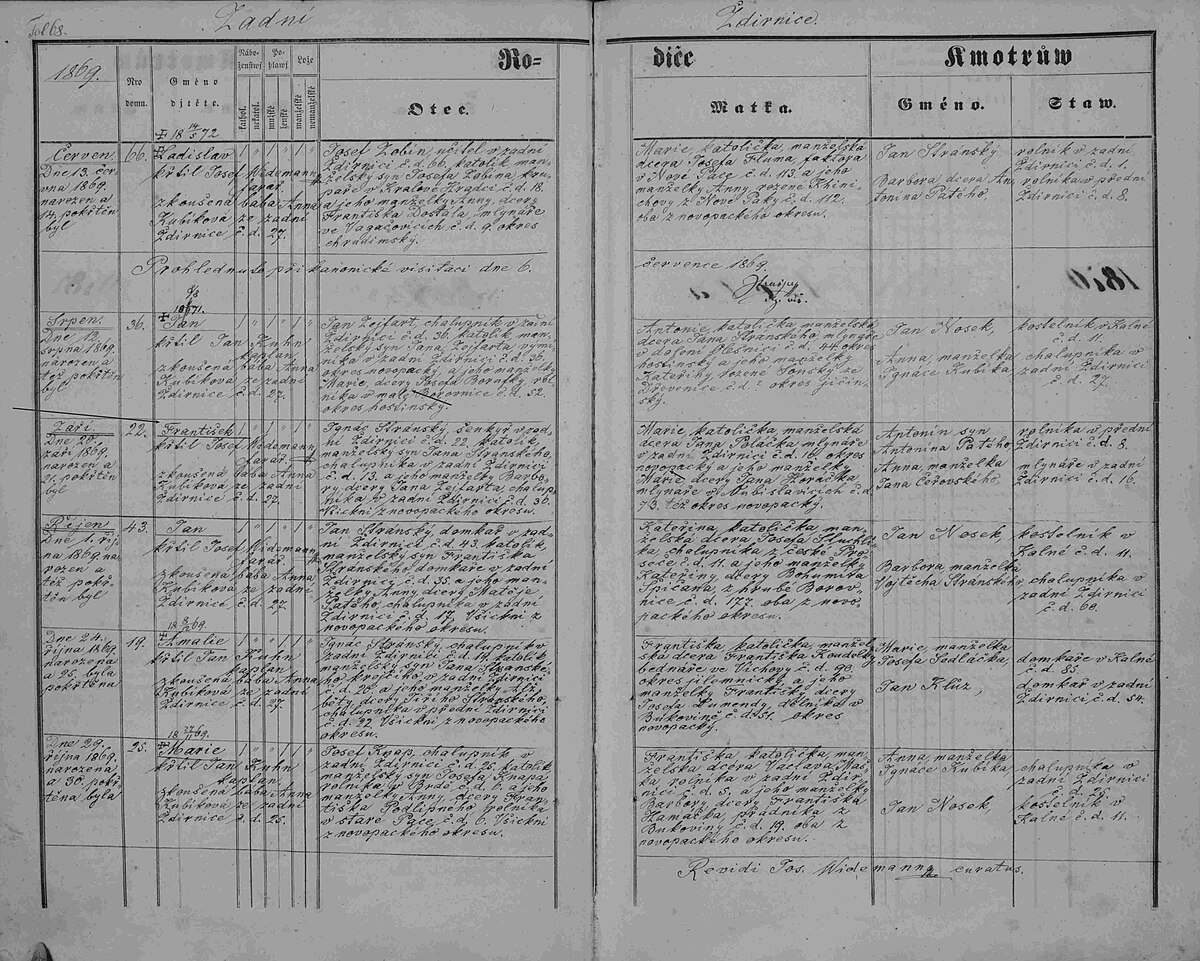 Fol 68.
Zadní
Ždirnice.
1869.
Nro domu.
Gméno djtěte.
Nábo-ženstwj
Po-hlawj
Lože
kathol.
nekatol.
mužské
ženské
manželské
nemanželské
Ro=
diče
Kmotrůw
Otec.
Matka.
Gméno.
Staw.
Červen
Dne 13. čer-
vna 1869.
narozen a
14. pokřtěn
byl
66.
Ladislav
křtil Josef Widemann
farář.
zkoušená bába Anna
Kubiková ze zadní
Ždirnice č. d. 27.
Josef Zobin, učitel v zadní
Ždirnici č. d. 66, katolík man-
želský syn Josefa Zobina, kru-
paře v Králové Hradci č. d. 18.
a jeho manželky Anny, dcery
Františka Dostala, mlynáře
č. d. 9, okres
chrudimský.
Marie, katolička, manželská
dcera Josefa Fluma, faktora
v Nové Pace č. d. 113. a jeho
manželky Anny, rozené
chovy z Nové Paky č. d. 112.
oba z novopackého okresu.
Jan Stránský
Barbora dcera An-
tonína Patého,
rolník v zadní
Ždirnici č. d. 1.
rolníka v přední
Ždirnici č. d. 8.
Prohlednuto při kanonické visitaci dne 6.
července 1869.
Srpen.
Dne 12.
srpna 1869.
narozen a
též pokřtěn
byl
36.
Jan
křtil Jan Kuhn
kaplan.
zkoušená bába Anna
Kubiková ze zadní
Ždirnice č. d. 27.
Jan Zejfart, chalupník v zadní
Ždirnici č. d. 36. katolík man-
želský syn Jana Zejfarta, výmě-
níka v zadní Ždirnici č. d. 36.
okres novopacký, a jeho manželky
Marie, dcery Josefa Borůfky, rol-
níka v malé Borovnice č. d. 52.
okres hostinský.
Antonie, katolička, manželská
dcera Jana Stránského, mlynáře
v dolení č. d. 44. okres
hostinský a jeho manželky
Kateřiny rozené ze
Dřevenice č. d. 2 okres Gičín-
ský.
Jan Nosek,
Anna manželka
Ignáce Kubíka
kostelník v Kalné
č. d. 11.
chalupníka v
zadní Ždirnici
č. d. 27.
Září.
Dne 20.
září 1869.
narozen a
21. pokřtěn
byl
22.
František
křtil Josef Widemann
farář
zkoušená bába Anna
Kubiková ze zadní
Ždirnice č. d. 27.
Ignác Stránský, šenkýř v zad-
ní Ždirnici č. d. 22. katolík,
manželský syn Jana Stránského,
chalupníka v zadní Ždirnici
č. d. 13. a jeho manželky Barbo-
ry, dcery Jana Zejfarta, chalup-
níka v zadní Ždirnici č. d. 36.
Všickni z novopackého okresu.
Marie, katolička, manželská
dcera Jana Poláčka, mlynáře
v zadní Ždirnici č. d. 16. okres
novopacký a jeho manželky
Marie, dcery Jana Horáčka,
mlynáře v Nudislavicích č. d.
73. též okres novopacký.
Antonín syn
Antonína Patého
Anna manželka
Jana Čeřovského,
rolníka v přední
Ždirnici č. d. 8.
mlynáře v zadní
Ždirnici č. d. 16.
Říjen
Dne 1. říj-
na 1869. na-
rozen a
též pokř-
těn byl
43.
Jan
křtil Josef Widemann
farář.
zkoušená bába Anna
Kubiková ze zadní
Ždirnice č. d. 27.
Jan Stránský, domkář v zad-
ní Ždirnici č. d. 43. katolík,
manželský syn Františka
Stránského, domkáře v zadní
Ždirnici č. d. 35. a jeho man-
želky Anny, dcery Matěje
Patého, chalupníka v zadní
Ždirnici č. d. 17. Všickni z
novopackého okresu.
Kateřina, katolička, man-
želská dcera Josefa
chalupníka z české Pro-
seče č. d. 11. a jeho manželky
Kateřiny, dcery Bohumíra
z hrubé Borov-
nice č. d. 177. oba z novo-
packého okresu.
Jan Nosek
Barbora manželka
Vojtěcha Stránského
kostelník v
Kalné č. d. 11.
chalupníka v
zadní Ždirnici
č. d. 60.
Dne 24.
října 1869.
narozena
a 25. byla
pokřtěna
19.
Amalie
křtil Jan Kuhn
kaplan.
zkoušená bába Anna
Kubiková ze zadní
Ždirnice č. d. 27.
Ignác Stránský, chalupník v
zadní Ždirnici č. d. 19. katolík,
manželský syn Jana Stránské-
ho, krejčího v zadní Ždirnici
č. d. 20. a jeho manželky Alž-
běty, dcery Jiřího Stránského,
chalupníka v přední Ždirnici
č. d. 22. Všickni z novopackého
okresu.
Františka, katolička, manžel-
ská dcera Františka Koudelky,
bednáře ve Vichové č. d. 90.
okres jilemnický a jeho
manželky Františky, dcery
Josefa dělníka v
Bukovině č. d. 51. okres
novopacký.
Marie, manželka
Josefa Sedláčka,
Jan Kluz,
domkáře v Kalné
č. d. 85.
domkář v zadní
Ždirnici č. d. 54.
Dne 29.
října 1869.
narozena
a 30. pokř-
těna byla
25.
Marie
křtil Jan Kuhn
kaplan.
zkoušená bába Anna
Kubiková ze zadní
Ždirnice č. d. 25.
Josef Knap, chalupník v
zadní Ždirnici č. d. 25, katolík,
manželský syn Josefa Knapa,
rolníka v Brdě č. d. 6. a jeho
manželky Anny, dcery Fran-
tiška Podlipného, rolníka
v staré Pace, č. d. 6. Všickni
z novopackého okresu.
Františka, katolička, man-
želská dcera Václava
rolníka v zadní Ždir-
nici č. d. 5. a jeho manželky
Barbory, dcery Františka
Hamáčka, prádníka z
Bukoviny č. d. 19. oba z
novopackého okresu.
Anna, manželka
Ignáce Kubíka
Jan Nosek,
chalupníka v
zadní Ždirnici
č. d. 25.
kostelník v
Kalné č. d. 11.
Revidi Jos. Widemann curatus.